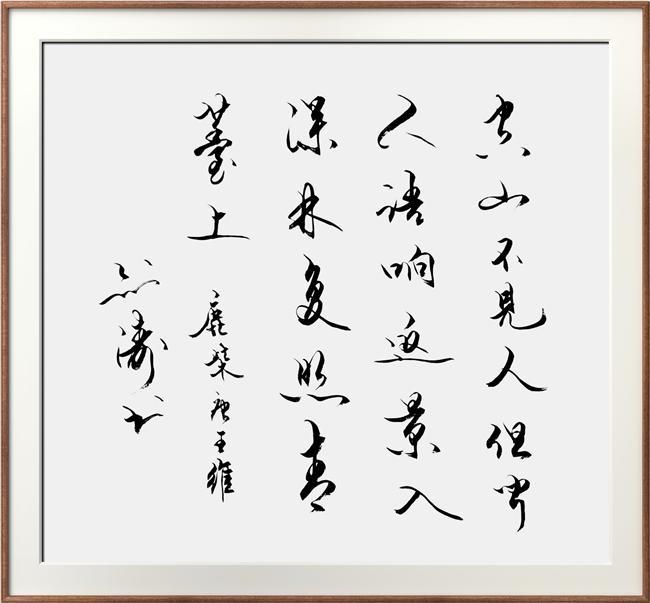 空山不見人但聞
人語响返景入
深林复照青
薹上 鹿柴唐王維
濤书